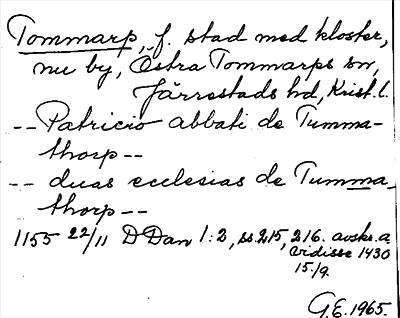 Tommarp, f. stad med kloster,
nu by, Östra Tommarps sn,
Järrestads hd, Krist. l.
-- Patricio abbati de Tumma-
thorp --
-- duas ecclesias de Tumma-
thorp --
1155 22/11 D Dan 1:2, ss. 215, 216. avskr. a
vidisse 1430
15/9.
G.E. 1965.